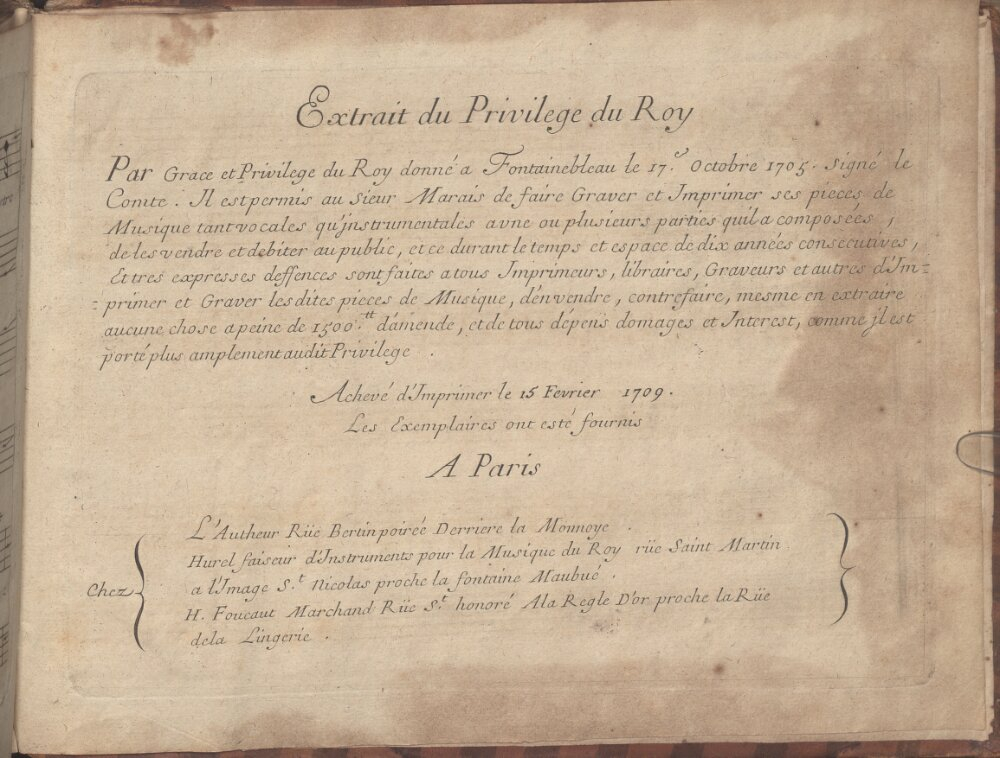 Extrait du Privilege du Roy
Par Grace et Privilege du Roy donné a Fontainebleau le 17.e Octobre 1705. signé le
Comte. Il est permis au Sieur Marais de faire Graver et Imprimer ses pieces de
Musique tant vocales qu'instrumentales a vne ou plusieurs parties quil a composées,
de les vendre et debiter au public, et ce durant le temps et espace de dix années consecutives,
Et tres expresses deffences sont faites a tous Imprimeurs, libraires, Graveurs et autres d'Im=
=primer et Graver les dites pieces de Musique, d'en vendre, contrefaire, mesme en extraire
aucune chose a peine de 1500.tt d'amende, et de tous dépens domages et Interest, comme jl est
porté plus amplement audit Privilege.
Achevé d'Imprimer le 15 Fevrier 1709.
Les Exemplaires ont esté fournis
A Paris
L'Autheur Rüe Bertinpoireé Derriere la Monnoye.
Hurel faiseur d'Instruments pour la Musique du Roy rüe Saint Martin
Chez a l'Image S.t Nicolas proche la fontaine Maubué.
H. Foucaut Marchand Rüe S.t honoré A la Regle D'or proche la Rüe
de la Lingerie.